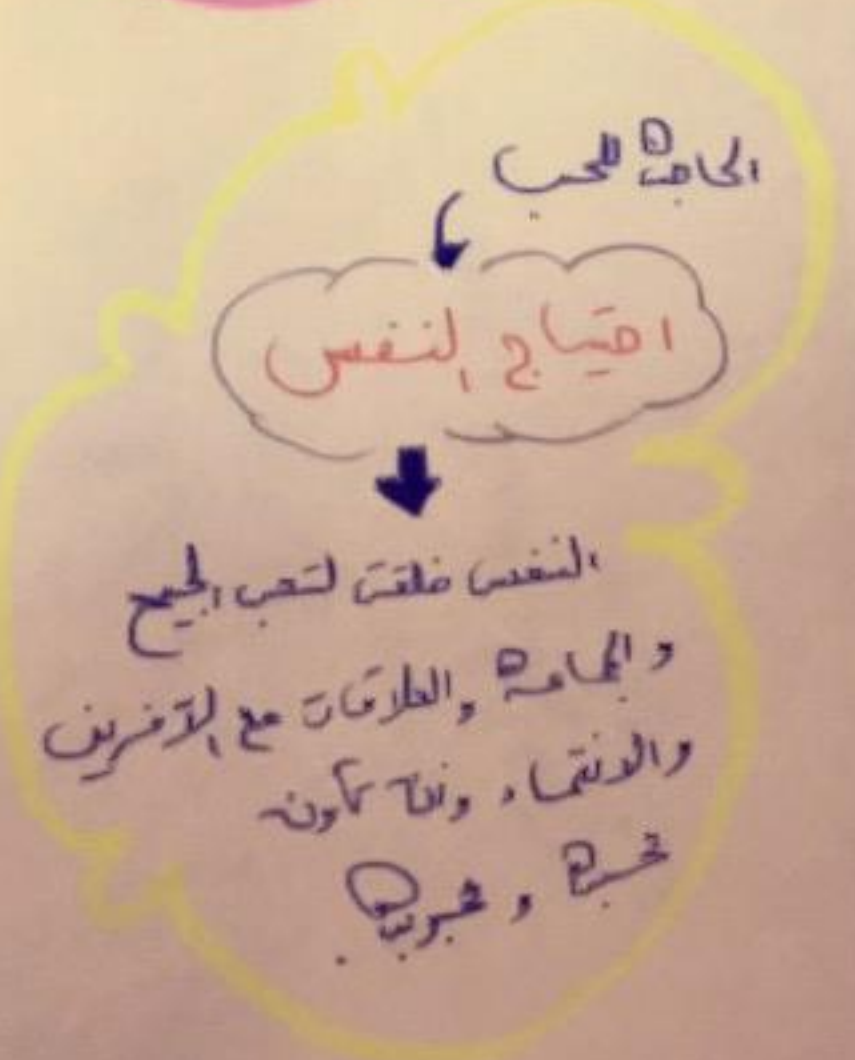 الحاجة للحب
احتياج النفس
النفس خلقت لتحب الجميع
والجماعة والعلاقات مع الآخرين
والانتماء وأن تكون
محبة ومحبوبة.